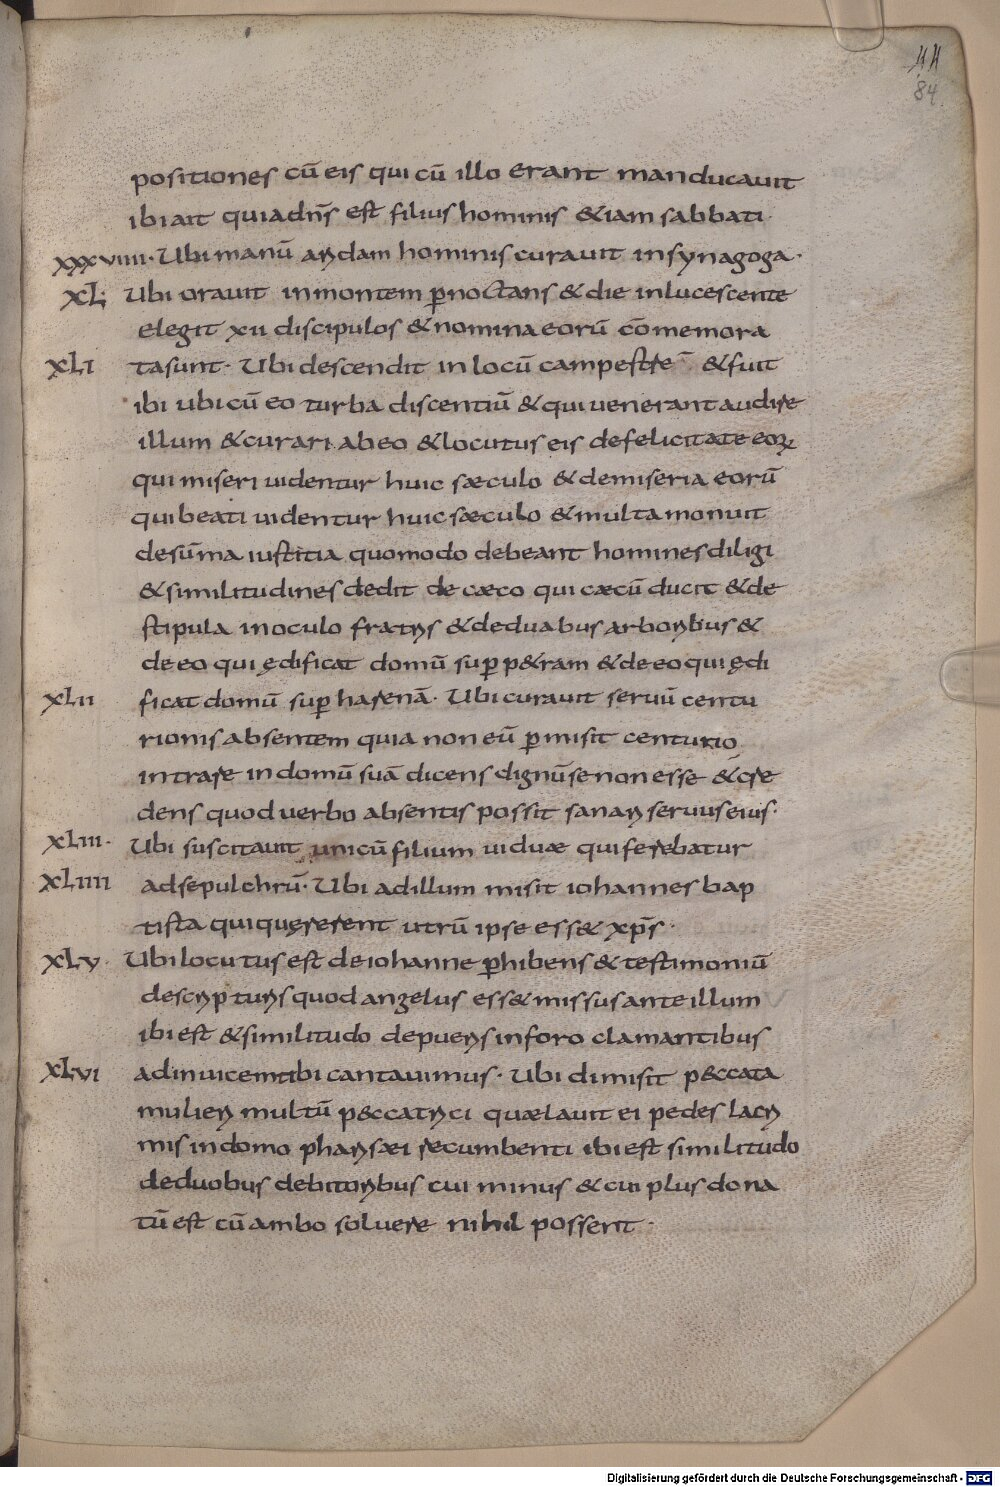 11
84
positiones cū eis qui cū illo erant manducauit
ibi ait quia dn̄s est filius hominis & iam sabbati·
xxxviiii· Ubi manū aridam hominis curauit in synagoga·
xL· Ubi orauit in montem p̄noctans & die inlucescente
elegit xii discipulos & nomina eorū cōmemora
xLi tasunt· Ubi descendit in locū campestrē & fuit
ibi ubi cū eo turba discentiū & qui uenerant audire
illum & curari ab eo & locutus eis de felicitate eoꝝ
qui miseri uidentur huic sæculo & de miseria eorū
qui beati uidentur huic sæculo & multa monuit
de sūma iustitia quomodo debeant homines diligi
& similitudines dedit de cæco qui cæcū ducit & de
stipula in oculo fratris & de duabus arboribus &
de eo qui ędificat domū sup̄ p&ram & de eo qui ędi
xLii ficat domū sup̄ harenā· Ubi curauit seruū centu
rionis absentem quia non eū p̄misit centurio
intrare in domū suā dicens dignū se non esse & cre
dens quod uerbo absentis possit sanari seruus eius·
xLiii· Ubi suscitauit unicū filium uiduæ qui ferebatur
xLiiii ad sepulchrū· Ubi ad illum misit iohannes bap
tista qui quęrerent utrū ipse ess& xp̄s·
xLv· Ubi locutus est de iohanne p̄hibens & testimoniū
descripturis quod angelus ess& missus ante illum
ibi est & similitudo de pueris in foro clamantibus
xLvi ad inuicem tibi cantauimus· Ubi dimisit p&ccata
mulieri multū p&ccatrici quæ lauit ei pedes lacri
mis in domo pharisæi recumbenti ibi est similitudo
de duobus debitoribus cui minus & cui plus dona
tū est cū ambo soluere nihil possent·
Digitalisierung gefördert durch die Deutsche Forschungsgemeinschaft - DFG